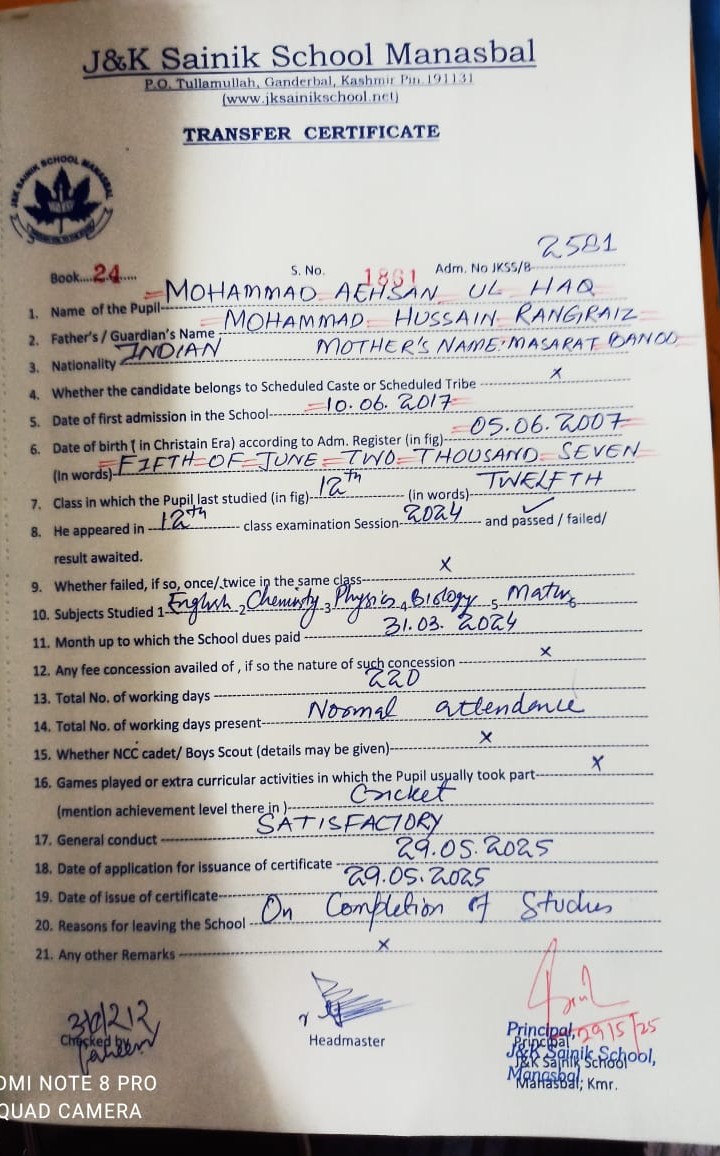 J&K Sainik School Manasbal
P.O. Tullamullah, Ganderbal, Kashmir Pin. 191131
(www.jksainikschool.net)
TRANSFER CERTIFICATE
J&K SAINIK SCHOOL MANASBAL
Book....24..... S. No. 1861 Adm. No JKSS/B- 2581
1. Name of the Pupil MOHAMMAD AEHSAN UL HAQ
2. Father's / Guardian's Name MOHAMMAD HUSSAIN RANGRAIZ
3. Nationality INDIAN MOTHER'S NAME: MASARAT BANOO
4. Whether the candidate belongs to Scheduled Caste or Scheduled Tribe x
5. Date of first admission in the School 10.06.2017
6. Date of birth ( in Christain Era) according to Adm. Register (in fig) 05.06.2007
(In words) FIFTH OF JUNE TWO THOUSAND SEVEN
7. Class in which the Pupil last studied (in fig) 12th (in words) TWELFTH
8. He appeared in 12th class examination Session 2024 and passed / failed/ ✓
result awaited.
9. Whether failed, if so, once/ twice in the same class x
10. Subjects Studied 1 English 2 Chemistry 3 Physics 4 Biology 5 Maths 6
11. Month up to which the School dues paid 31.03.2024
12. Any fee concession availed of , if so the nature of such concession x
13. Total No. of working days 220
14. Total No. of working days present Normal attendence
15. Whether NCC cadet/ Boys Scout (details may be given) x
16. Games played or extra curricular activities in which the Pupil usually took part x
(mention achievement level there in ) Cricket
17. General conduct SATISFACTORY
18. Date of application for issuance of certificate 29.05.2025
19. Date of issue of certificate 29.05.2025
20. Reasons for leaving the School On Completion of Studies
21. Any other Remarks x
Checked by
Headmaster
29/5/25
Principal,
Principal
J&K Sainik School,
J&K Sainik School
Manasbal
Manasbal; Kmr.
REDMI NOTE 8 PRO
QUAD CAMERA